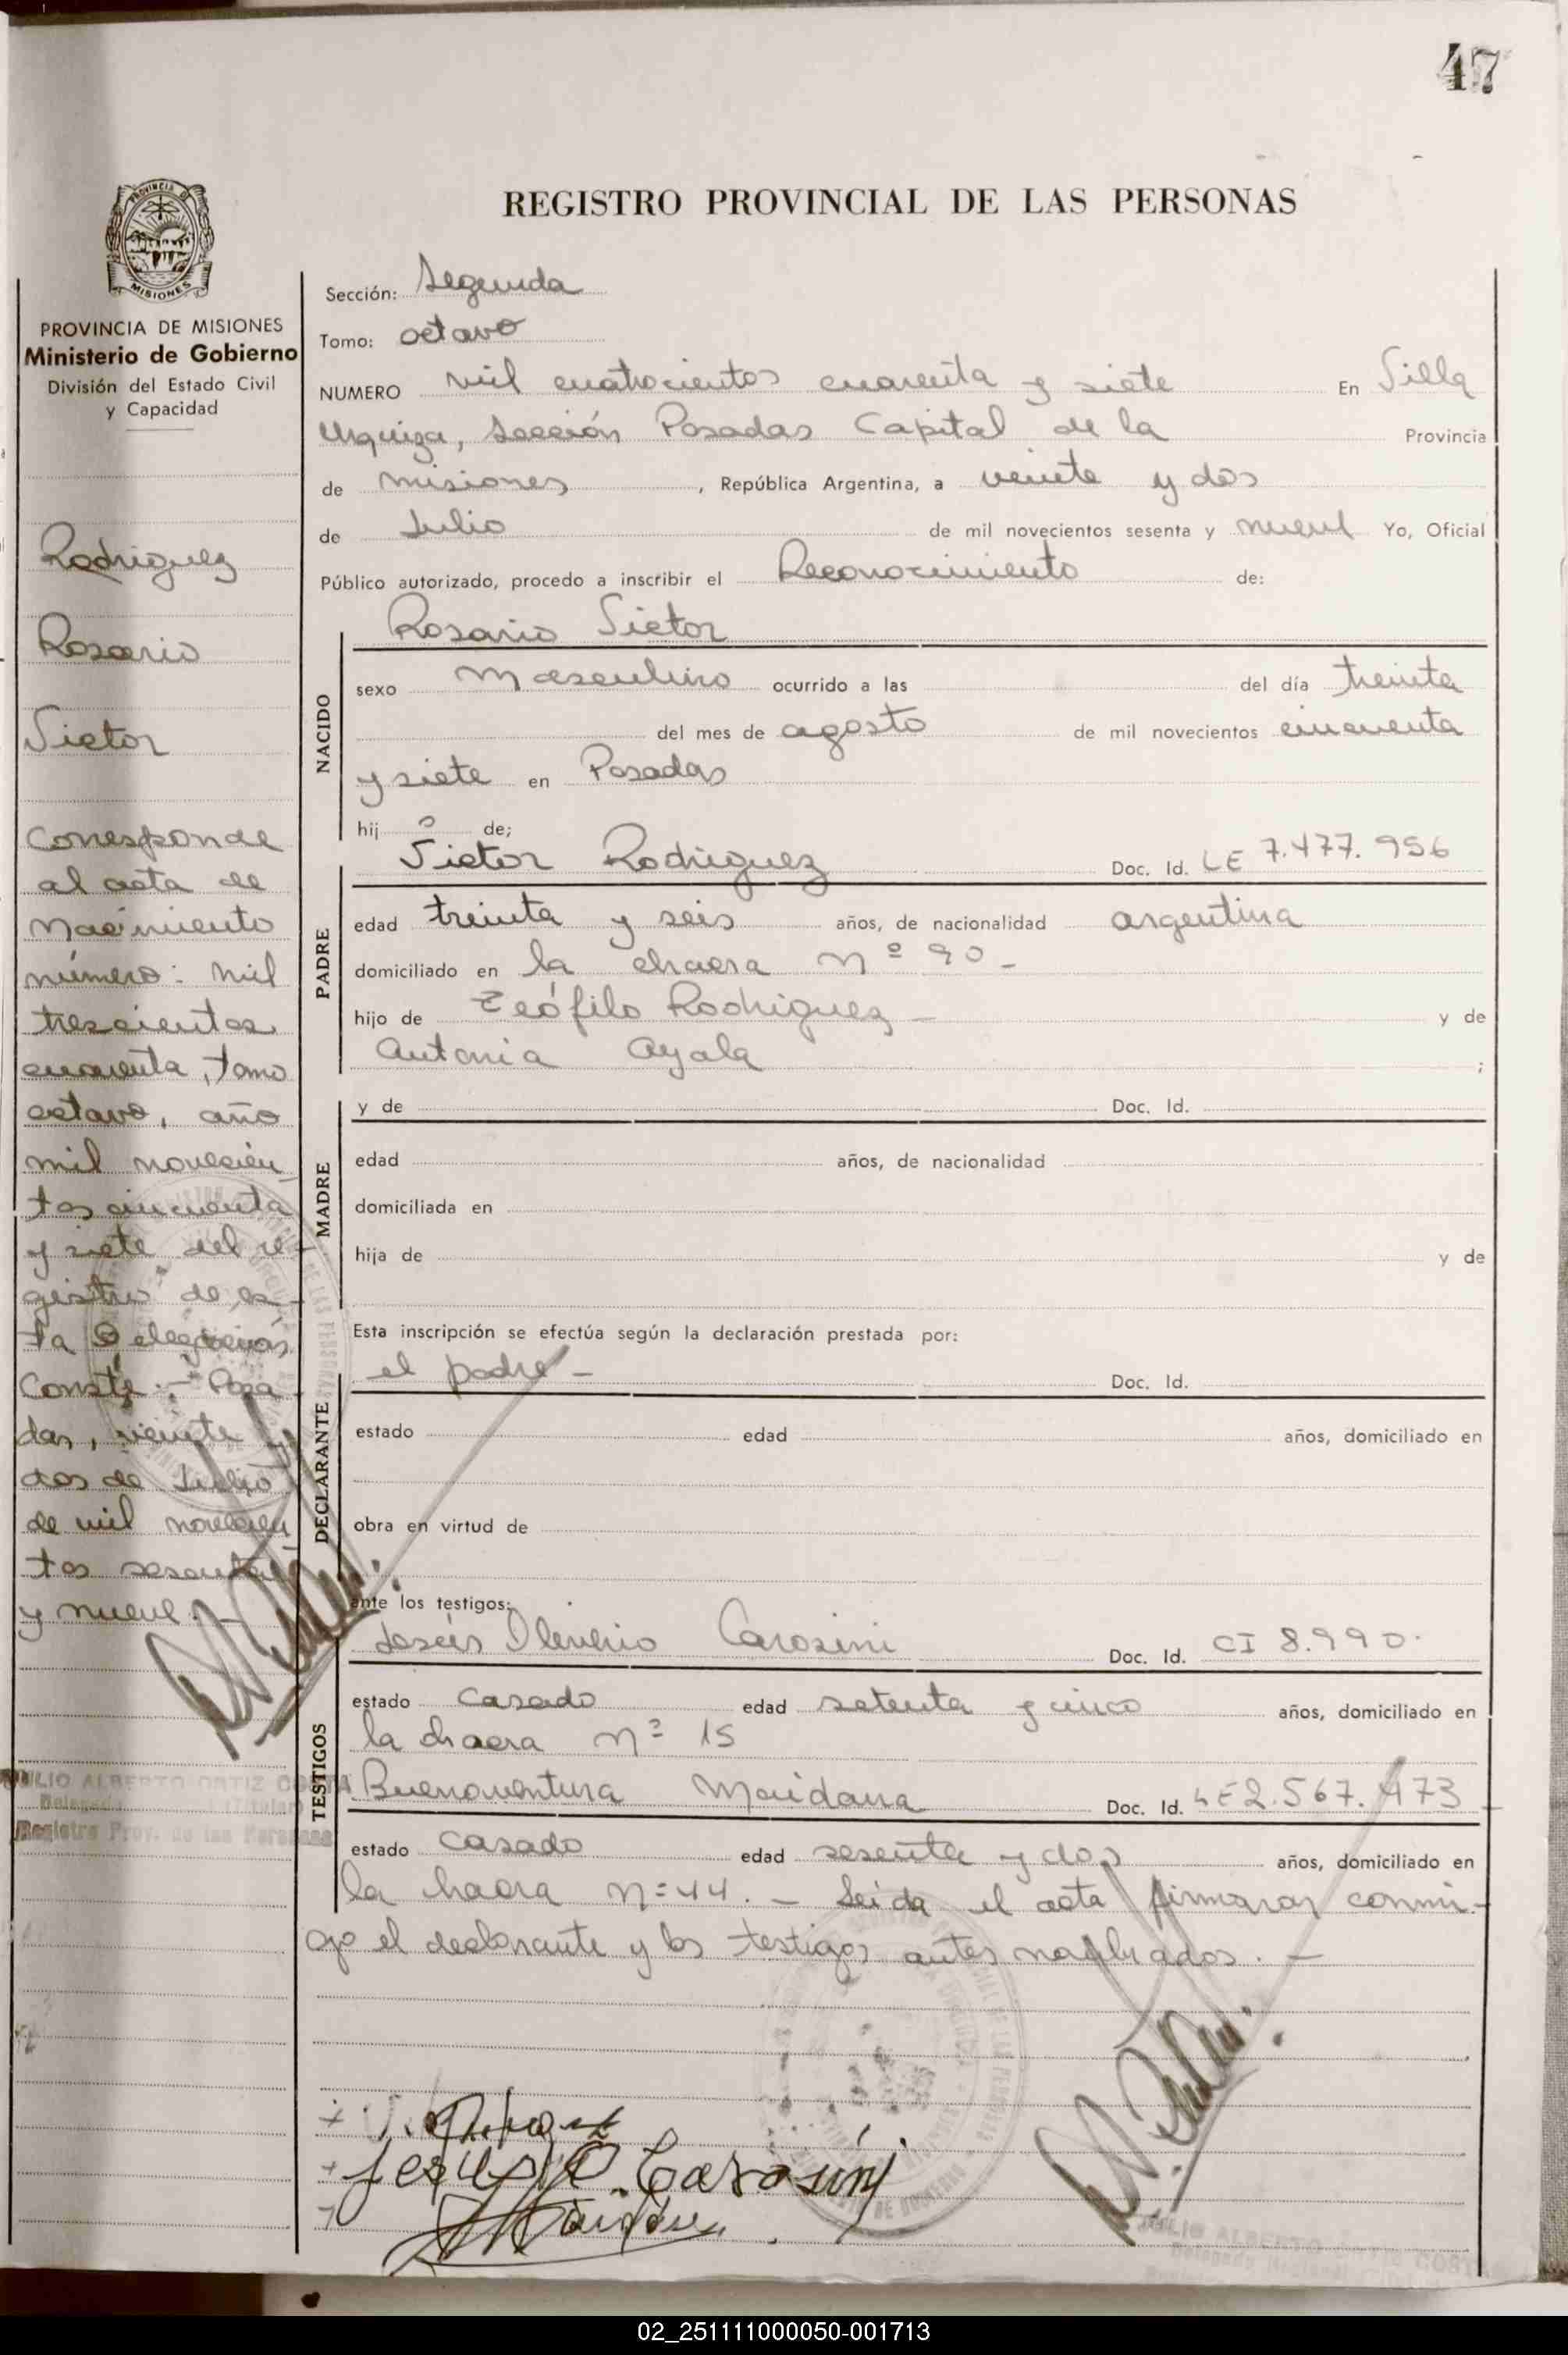 47
REGISTRO PROVINCIAL DE LAS PERSONAS
PROVINCIA DE MISIONES
PROVINCIA DE MISIONES
Ministerio de Gobierno
División del Estado Civil
y Capacidad
Rodriguez
Rosario
Victor
Corresponde
al acta de
Nacimiento
número: mil
trescientos
cuarenta, tomo
octavo, año
mil novecien
tos cincuenta
y siete del re-
gistro de es-
ta Delegación
Conste.- Posa
das, veinte y
dos de Julio
de mil novecien
tos sesenta
y nueve.
JULIO ALBERTO ORTIZ COSTA
Delegado (Titular)
Registro Prov. de las Personas
Sección: Segunda
Tomo: octavo
NUMERO mil cuatrocientos cuarenta y siete En Villa
Urquiza, Sección Posadas Capital de la Provincia
de Misiones, República Argentina, a veinte y dos
de Julio de mil novecientos sesenta y nueve Yo, Oficial
Público autorizado, procedo a inscribir el Reconocimiento de:
Rosario Victor
NACIDO
sexo Masculino ocurrido a las del día treinta
del mes de agosto de mil novecientos cincuenta
y siete en Posadas
hij o de;
Victor Rodriguez Doc. Id. LE 7.477.956
PADRE
edad treinta y seis años, de nacionalidad argentina
domiciliado en la chacra Nº 90-
hijo de Teófilo Rodriguez - y de
Antonia Ayala ;
MADRE
y de Doc. Id.
edad años, de nacionalidad
domiciliada en
hija de y de
Esta inscripción se efectúa según la declaración prestada por:
el padre - Doc. Id.
DECLARANTE
estado edad años, domiciliado en
obra en virtud de
ante los testigos:
Jesús Carosini Doc. Id. CI 8.990.
TESTIGOS
estado casado edad setenta y cinco años, domiciliado en
la chacra Nº 15
Buenaventura Maidana Doc. Id. LE 2.567.473
estado casado edad sesenta y dos años, domiciliado en
la chacra Nº 44. - Leida el acta firmaron conmi-
go el declarante y los testigos antes nombrados. -
Jesús O. Carosini
JULIO ALBERTO ORTIZ COSTA
02_251111000050-001713